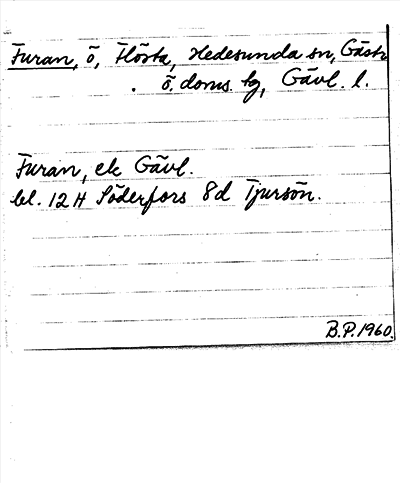 Furan, ö, Hösta, Hedesunda sn, Gästr
ö. doms. hg, Gävl. l.
Furan, ek Gävl.
bl. 12 H Söderfors 8d Tjursön.
B.P. 1960.